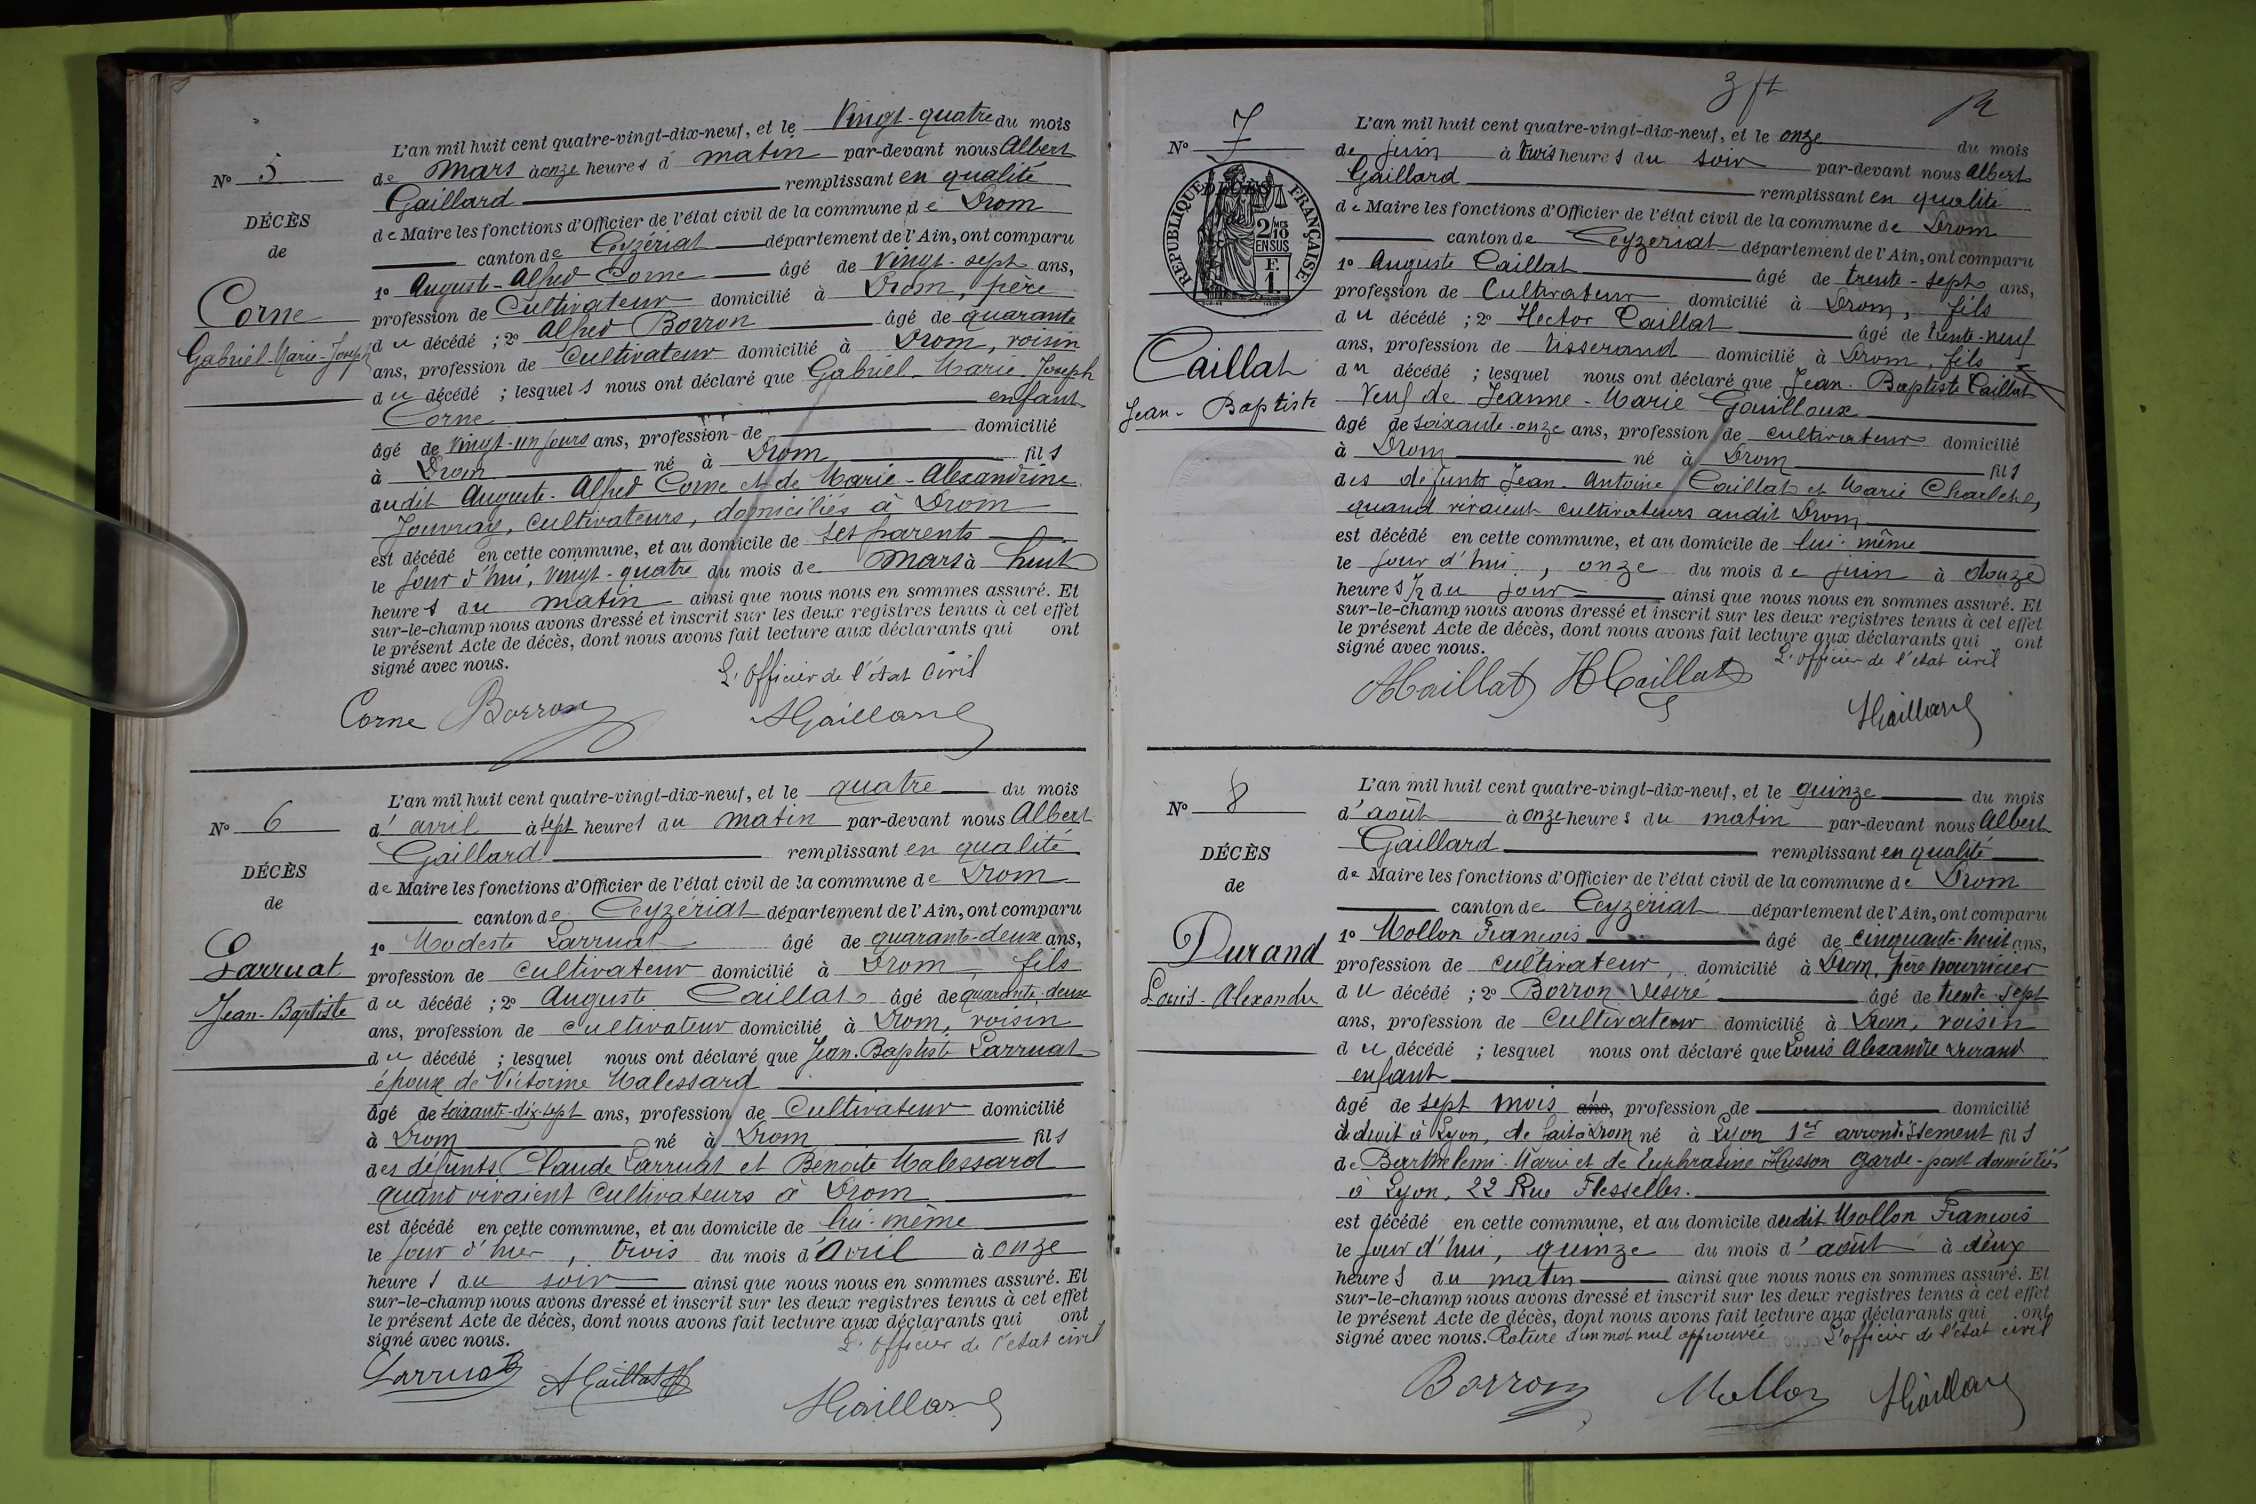 L'an mil huit cent quatre-vingt-dix-neuf, et le Vingt-quatre du mois
de Mars à onze heures d matin par-devant nous Albert
Gaillard remplissant en qualité
de Maire les fonctions d'Officier de l'état civil de la commune de Drom
canton de Ceyzériat département de l'Ain, ont comparu
1º Auguste-Alfred Corne âgé de vingt-sept ans,
profession de Cultivateur domicilié à Drom, père
du décédé ; 2º Alfred Borron âgé de quarante
ans, profession de Cultivateur domicilié à Drom, voisin
du décédé ; lesquels nous ont déclaré que Gabriel-Marie-Joseph
Corne enfant
âgé de vingt-un jours ans, profession de domicilié
à Drom né à Drom fils
dudit Auguste-Alfred Corne et de Marie-Alexandrine
Jouvray, cultivateurs, domiciliés à Drom
est décédé en cette commune, et au domicile de ses parents
le jour d'hui, vingt-quatre du mois de Mars à huit
heures du matin ainsi que nous nous en sommes assuré. Et
sur-le-champ nous avons dressé et inscrit sur les deux registres tenus à cet effet
le présent Acte de décès, dont nous avons fait lecture aux déclarants qui ont
signé avec nous.
L'officier de l'état civil
Corne Borron AGaillard
Nº 5
DÉCÈS
de
Corne
Gabriel-Marie-Joseph
L'an mil huit cent quatre-vingt-dix-neuf, et le quatre du mois
d'avril à sept heures du matin par-devant nous Albert
Gaillard remplissant en qualité
de Maire les fonctions d'Officier de l'état civil de la commune de Drom
canton de Ceyzériat département de l'Ain, ont comparu
1º Modeste Larruat âgé de quarante-deux ans,
profession de cultivateur domicilié à Drom, fils
du décédé ; 2º Auguste Caillat âgé de quarante-deux
ans, profession de cultivateur domicilié à Drom, voisin
du décédé ; lesquel nous ont déclaré que Jean-Baptiste Larruat
époux de Victorine Malessard
âgé de soixante-dix-sept ans, profession de Cultivateur domicilié
à Drom né à Drom fils
des défunts Claude Larruat et Benoite Malessard
quand vivaient Cultivateurs à Drom
est décédé en cette commune, et au domicile de lui-même
le jour d'hier, trois du mois d'Avril à onze
heures du soir ainsi que nous nous en sommes assuré. Et
sur-le-champ nous avons dressé et inscrit sur les deux registres tenus à cet effet
le présent Acte de décès, dont nous avons fait lecture aux déclarants qui ont
signé avec nous. L'officier de l'état civil
Larruat ACaillat
AGaillard
Nº 6
DÉCÈS
de
Larruat
Jean-Baptiste
3 ft
L'an mil huit cent quatre-vingt-dix-neuf, et le onze du mois
de juin à trois heures du soir par-devant nous Albert
Gaillard remplissant en qualité
de Maire les fonctions d'Officier de l'état civil de la commune de Drom
canton de Ceyzériat département de l'Ain, ont comparu
1º Auguste Caillat âgé de trente-sept ans,
profession de Cultivateur domicilié à Drom, fils
du décédé ; 2º Hector Caillat âgé de trente-neuf
ans, profession de tisserand domicilié à Drom, fils
du décédé ; lesquel nous ont déclaré que Jean-Baptiste Caillat
Veuf de Jeanne-Marie Gouilloux
âgé de soixante-onze ans, profession de cultivateur domicilié
à Drom né à Drom fils
des défunts Jean-Antoine Caillat et Marie
quand vivaient cultivateurs audit Drom
est décédé en cette commune, et au domicile de lui-même
le jour d'hui, onze du mois de juin à douze
heures ½ du jour ainsi que nous nous en sommes assuré. Et
sur-le-champ nous avons dressé et inscrit sur les deux registres tenus à cet effet
le présent Acte de décès, dont nous avons fait lecture aux déclarants qui ont
signé avec nous. L'officier de l'état civil
ACaillat HCaillat
AGaillard
Nº 7
DÉCÈS
de
RÉPUBLIQUE FRANÇAISE
2/10 MES
EN SUS
F.
1.
Caillat
Jean-Baptiste
L'an mil huit cent quatre-vingt-dix-neuf, et le quinze du mois
d'août à onze heures du matin par-devant nous Albert
Gaillard remplissant en qualité
de Maire les fonctions d'Officier de l'état civil de la commune de Drom
canton de Ceyzériat département de l'Ain, ont comparu
1º Mollon François âgé de cinquante-huit ans,
profession de cultivateur, domicilié à Drom, père nourricier
du décédé ; 2º Borron Désiré âgé de trente-sept
ans, profession de Cultivateur domicilié à Drom, voisin
du décédé ; lesquel nous ont déclaré que Louis Alexandre Durand
enfant
âgé de sept mois ans, profession de domicilié
de droit à Lyon, de fait à Drom né à Lyon 1er arrondissement fils
de Barthélemi-Marie et de Euphrasine Husson garde-pont domiciliés
à Lyon, 22 Rue Flesselles.
est décédé en cette commune, et au domicile dudit Mollon François
le jour d'hui, quinze du mois d'août à deux
heures du matin ainsi que nous nous en sommes assuré. Et
sur-le-champ nous avons dressé et inscrit sur les deux registres tenus à cet effet
le présent Acte de décès, dont nous avons fait lecture aux déclarants qui ont
signé avec nous. Rature d'un mot nul approuvée L'officier de l'état civil
Borron Mollon AGaillard
Nº 8
DÉCÈS
de
Durand
Louis-Alexandre